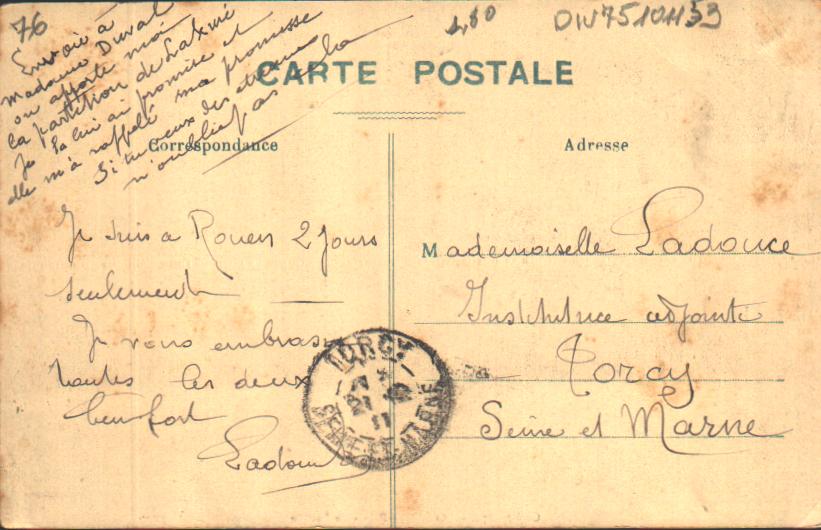 76
1,80
DIV7510H53
Envoie à
madame Duval
ou apporte moi
la partition de Lakmé
Je la lui ai promise et
elle m'a rappelé ma promesse
Si tu veux des
n'oublie pas cela
CARTE POSTALE
Correspondance
Adresse
Je suis a Rouen 2 jours
seulement
Je vous embrasse
toutes les deux
bien fort
Ladouce
Mademoiselle Ladouce
Institutrice adjointe
Torcy
Seine et Marne
TORCY
SEINE-ET-MARNE